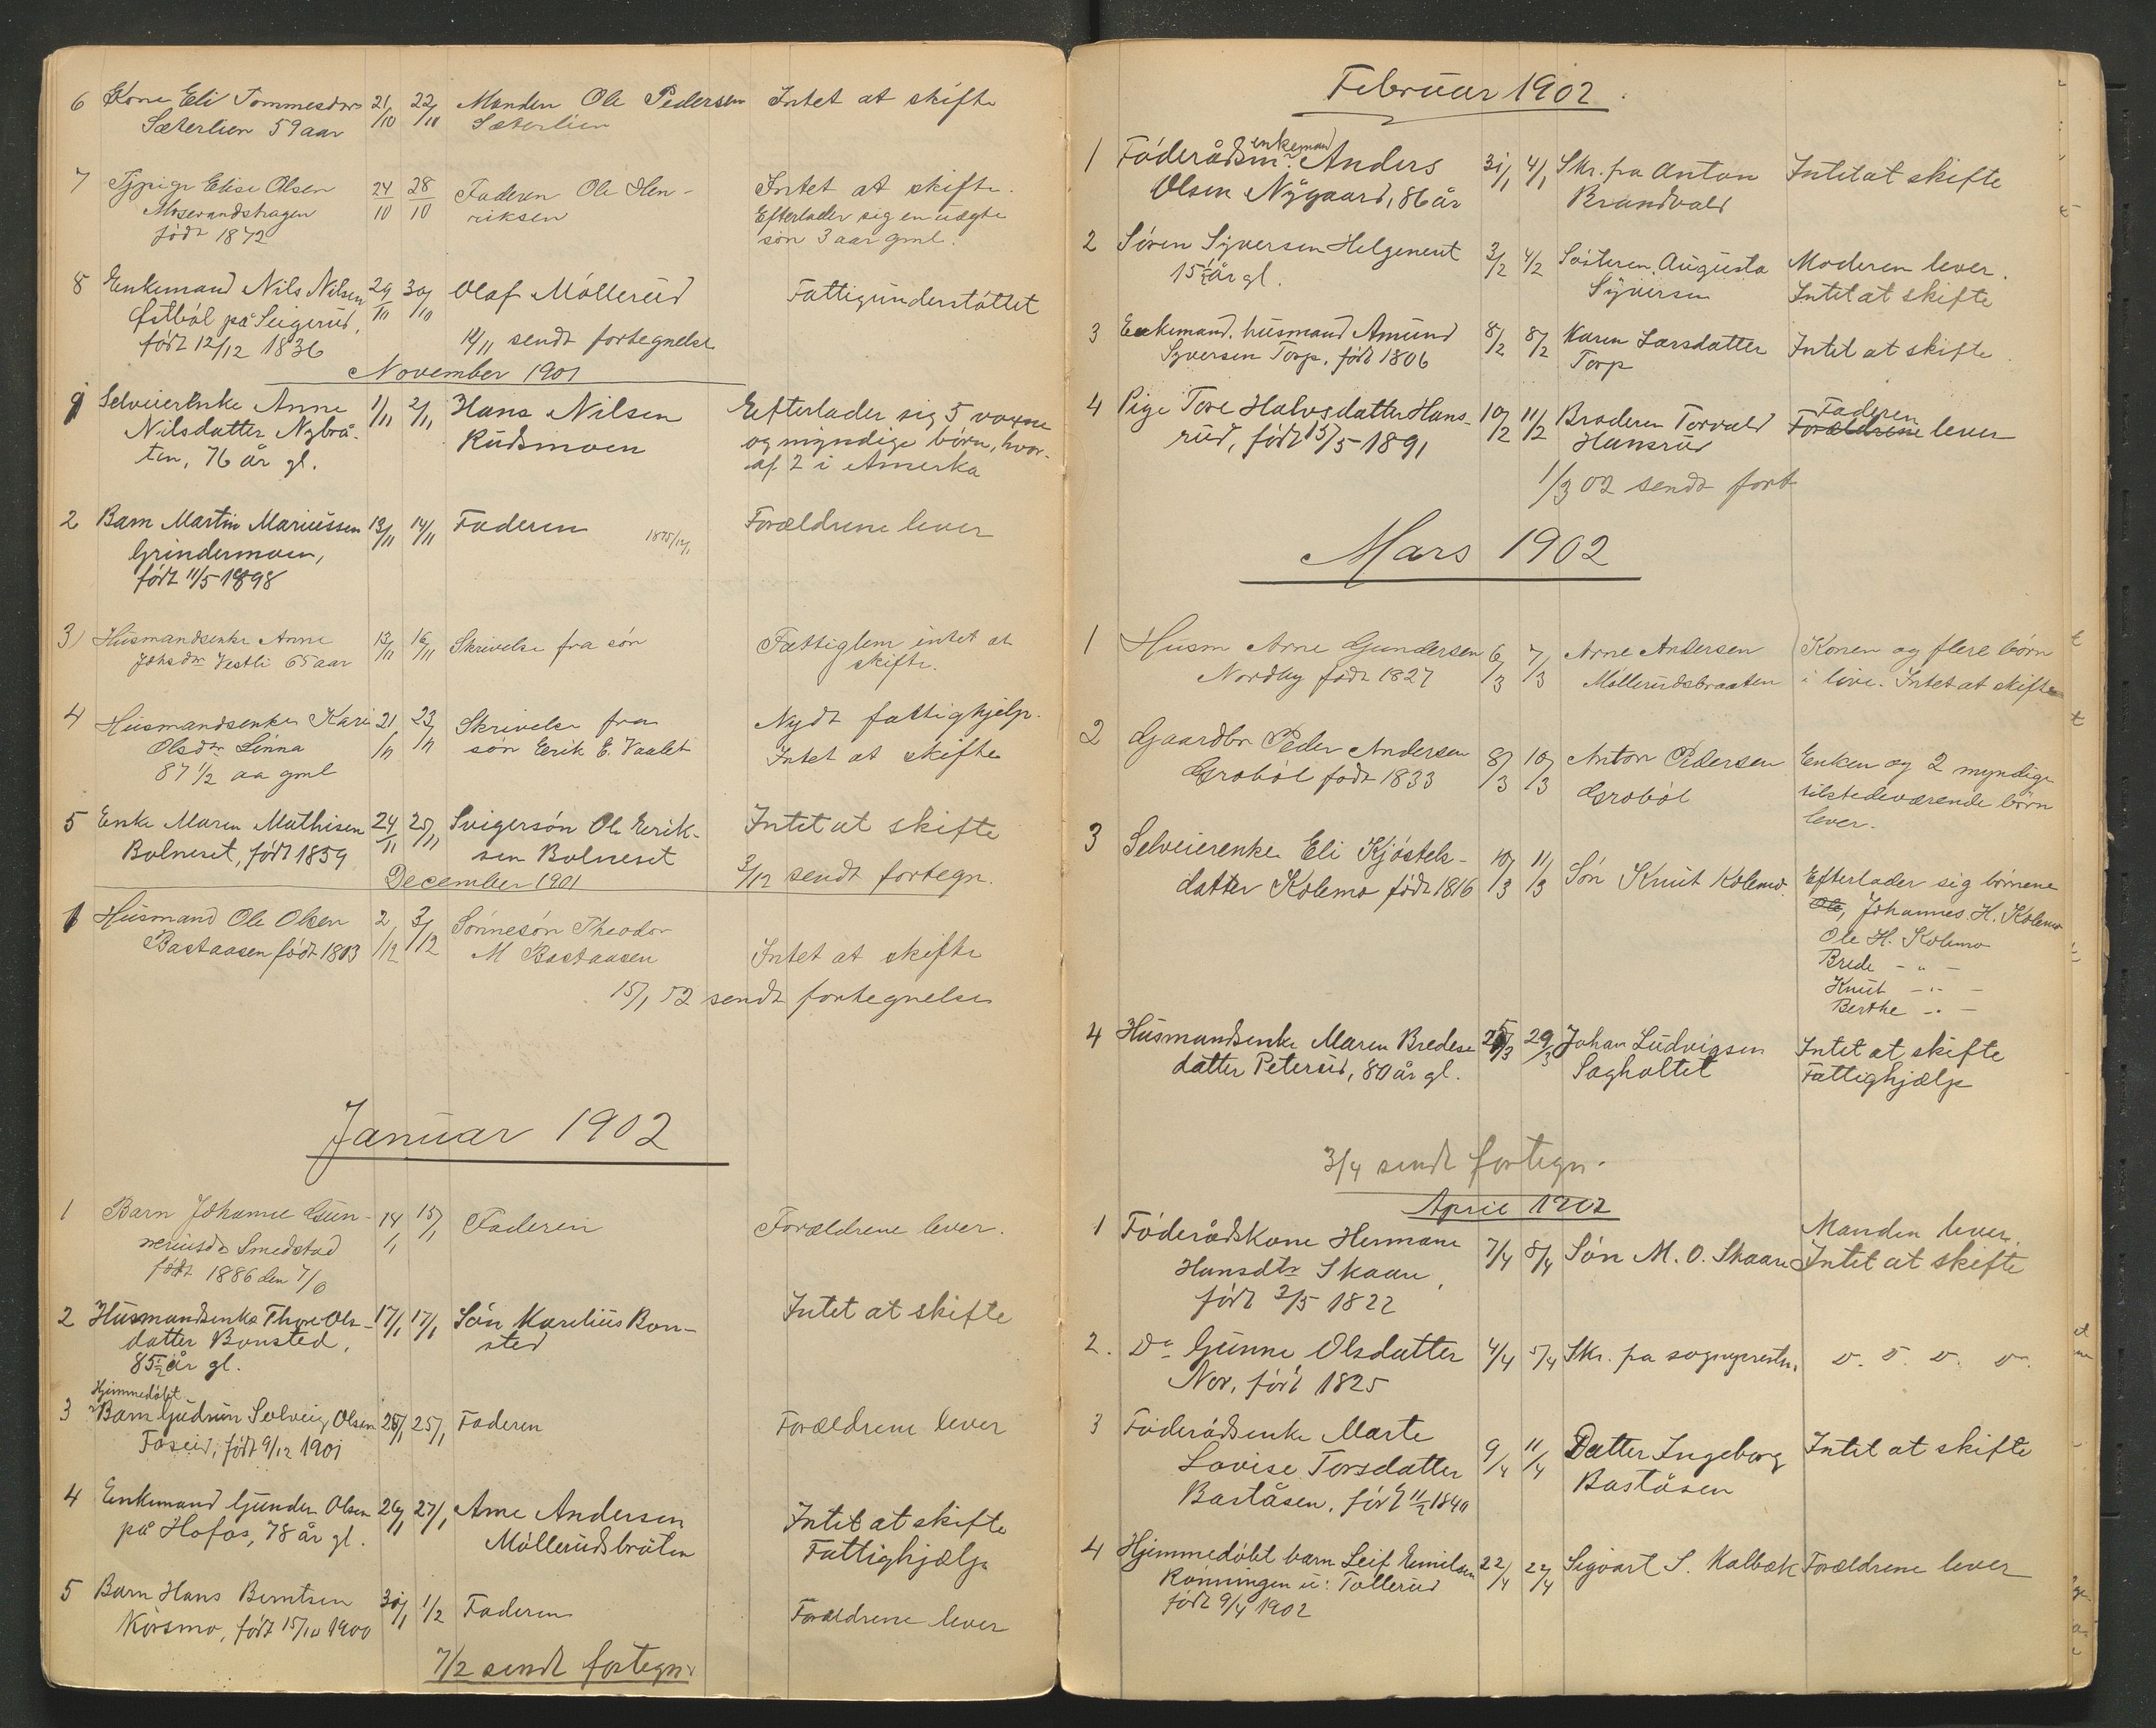 6 Kone Eli Tommesdatr 21/10 22/10 Manden Ole Pedersen Intet at skifte
Sæterlien 59 aar Sæterlien
7 Tjpige Elise Olsen 24/10 28/10 Faderen Ole Hen- Intet at skifte.
Moservandshagen riksen Efterlader sig en uægte
født 1872 søn 3 aar gml.
8 Enkemand Nils Nilsen 29/10 30/10 Olaf Møllerud Fattigunderstøttet
på Seigerud,
født 12/12 1836 14/11 sendt fortegnelse
November 1901
1 Selveierenke Anne 1/11 2/11 Hans Nilsen Efterlader sig 5 voxne
Nilsdatter Nybrå- Rudsmoen og myndige børn, hvor-
ten, 76 år gl. af 2 i Amerika
2 Barn Martin Mariussen 13/11 14/11 Faderen Forældrene lever
Grindermoen,
født 11/5 1898
3) Husmandsenke Anne 13/11 16/11 Skrivelse fra søn Fattiglem intet at
Johsdtr Vestli 65 aar skifte.
4 Husmandsenke Kari 21/11 23/11 Skrivelse fra Nydt fattighjelp.
Olsdtr Linna søn Erik E. Vaalet Intet at skifte
87 1/2 aa gml
5 Enke Maren Mathisen 24/11 25/11 Svigersøn Ole Erik- Intet at skifte
Bolneset, født 1859 sen Bolneset
December 1901 3/12 sendt fortegn.
1 Husmand Ole Olsen 2/12 3/12 Sønnesøn Theodor
Bastaasen født 1813 M Bastaasen Intet at skifte
15/1 02 sendt fortegnelse
Januar 1902
1 Barn Johanne Gun- 14/1 15/1 Faderen Forældrene lever.
neriusdtr Smedstad
født 1886 den 7/6
2 Husmandsenke Thore Ols- 17/1 17/1 Søn Karelius Bon- Intet at skifte
datter Bonsted, sted
85 1/2 år gl.
Hjemmedøbt
3 Barn Gudrun Solveig Olsen 25/1 25/1 Faderen Forældrene lever
Foseid, født 9/12 1901
4 Enkemand Gunder Olsen 26/1 27/1 Arne Andersen Intet at skifte
på Hofos, 78 år gl. Møllerudsbråten Fattighjælp
5 Barn Hans Berntsen 30/1 1/2 Faderen Forældrene lever
Korsmo, født 15/10 1900
7/2 sendt fortegn.
Februar 1902.
enkemand
1 Føderådsm. Anders 31/1 4/1 Skr. fra Anton Intet at skifte
Olsen Nygaard, 86 år Brandvald
2 Søren Syversen Helgeneset 3/2 4/2 Søsteren Augusta Moderen lever.
15 1/2 år gl. Syversen Intet at skifte
3 Enkemand, husmand Amund 8/2 8/2 Karen Larsdatter Intet at skifte
Syversen Torp, født 1806 Torp
Faderen
4 Pige Tore Halvsdatter Hans- 10/2 11/2 Broderen Torvald Forældrene lever
rud, født 15/5 1891 Hansrud
1/3 02 sendt fort
Mars 1902
1 Husm Arne Gundersen 6/3 7/3 Arne Andersen Konen og flere børn
Nordby født 1827 Møllerudsbraaten i live. Intet at skifte
2 Gaardbr Peder Andersen 8/3 10/3 Anton Pedersen Enken og 2 myndige
Grobøl født 1833 Grobøl tilstedeværende børn
lever.
3 Selveierenke Eli Kjøstels- 10/3 11/3 Søn Knut Kolemo Efterlader sig børnene
datter Kolemo født 1816 Ole, Johannes H. Kolemo
Ole H. Kolemo
Brede - " -
Knut - " -
Berthe - " -
4 Husmandsenke Maren Bredese 25/3 29/3 Johan Ludvigsen Intet at skifte
datter Petersud, 80 år gl. Sagholtet Fattighjælp
3/4 sendt fortegn.
April 1902
1 Føderådskone Hermane 7/4 8/4 Søn M. O. Skaare Manden lever.
Hansdtr Skaare, Intet at skifte
født 3/5 1822
2. Do Gunne Olsdatter 4/4 5/4 Skr. fra sogneprestn. D. D. D. D.
Nor, født 1825
3 Føderådsenke Marte 9/4 11/4 Datter Ingeborg Intet at skifte
Lovise Torsdatter Baståsen
Baståsen, født 11/2 1840
4 Hjemmedøbt barn Leif Emilsen 22/4 22/4 Sigvart S. Kalbæk Forældrene lever
Rønningen u: Tollerud
født 9/4 1902